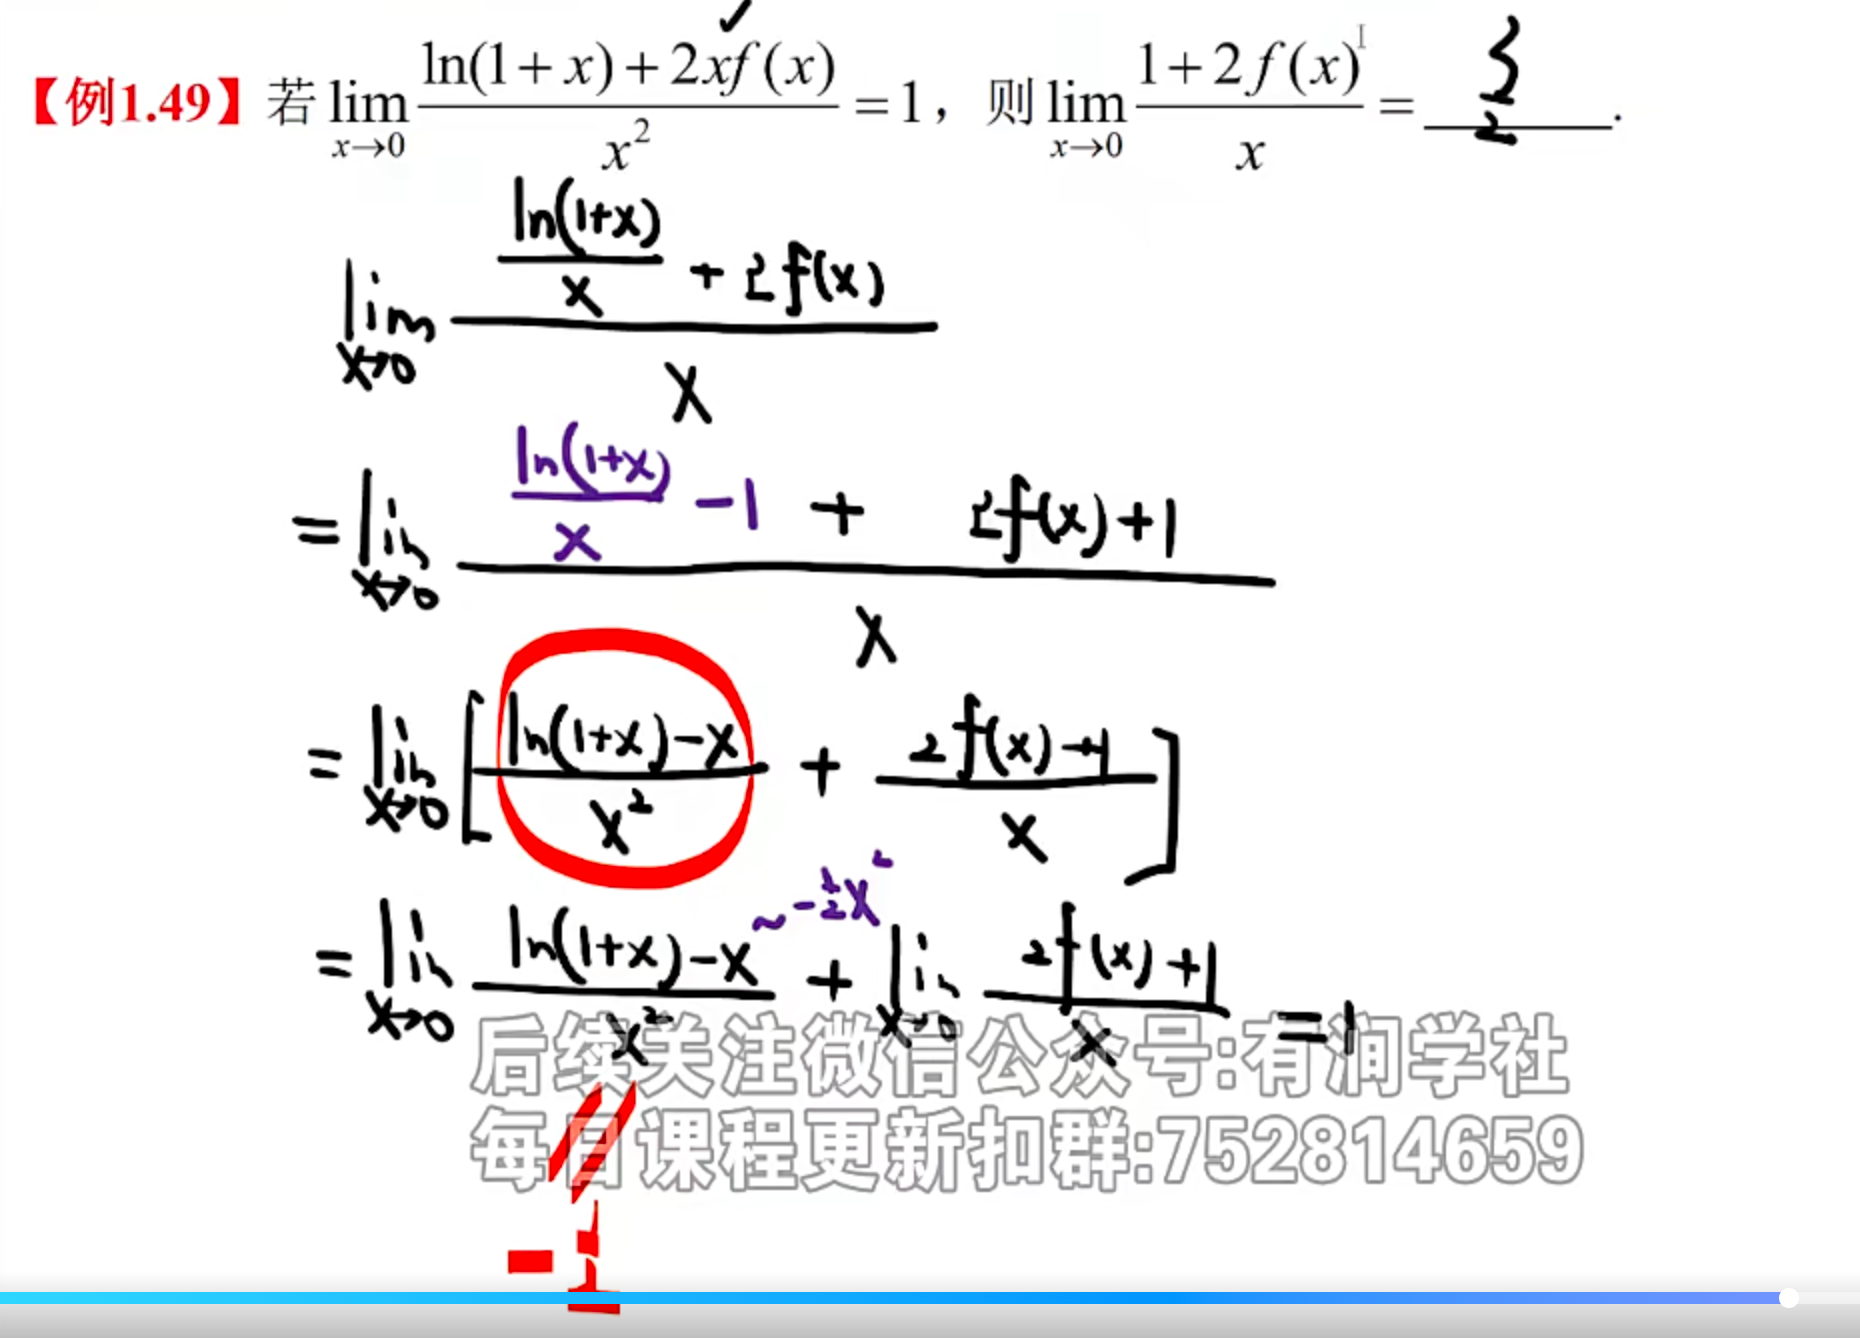 【例1.49】若 lim_{x→0} (ln(1+x)+2xf(x))/x² =1，则 lim_{x→0} (1+2f(x))/x = 3/2 .
lim_{x→0} (ln(1+x)/x + 2f(x))/x
= lim_{x→0} (ln(1+x)/x -1 + 2f(x)+1)/x
= lim_{x→0} [(ln(1+x)-x)/x² + (2f(x)+1)/x]
~ -1/2 x²
= lim_{x→0} (ln(1+x)-x)/x² + lim_{x→0} (2f(x)+1)/x =1
后续关注微信公众号:有润学社
每日课程更新扣群:752814659